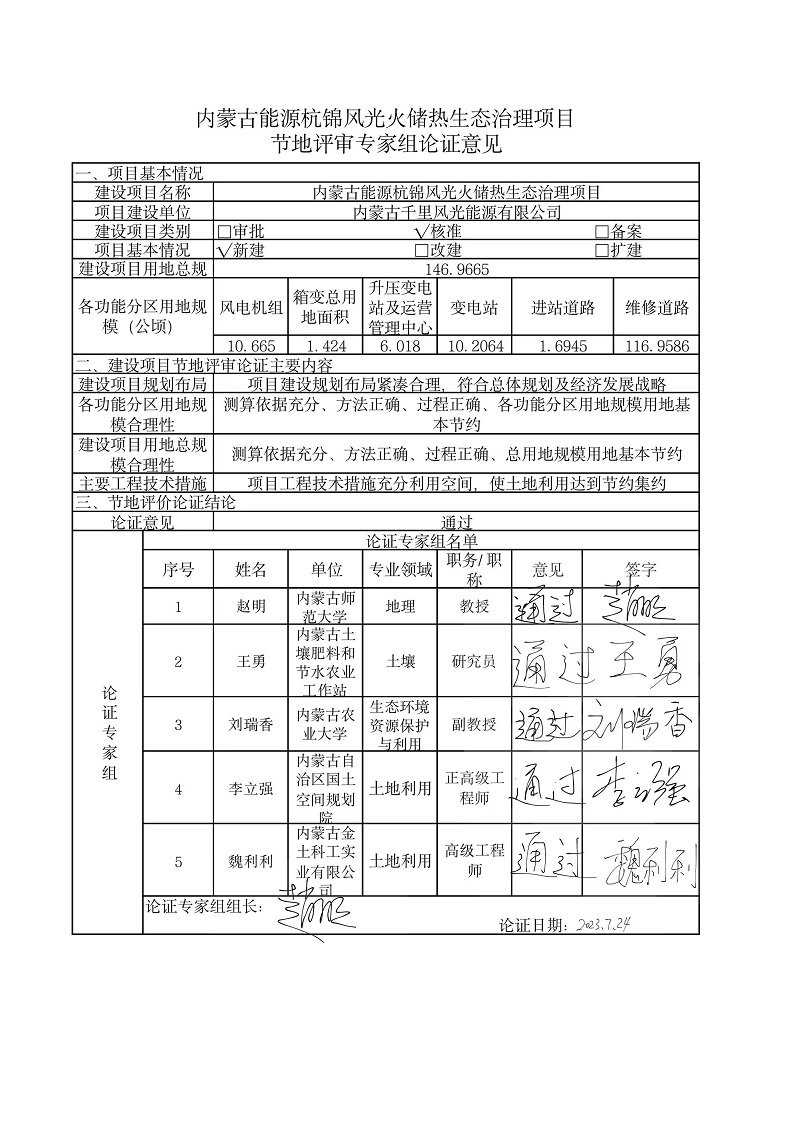 内蒙古能源杭锦风光火储热生态治理项目
节地评审专家组论证意见
一、项目基本情况
建设项目名称 内蒙古能源杭锦风光火储热生态治理项目
项目建设单位 内蒙古千里风光能源有限公司
建设项目类别 □审批 √核准 □备案
项目基本情况 √新建 □改建 □扩建
建设项目用地总规 146.9665
各功能分区用地规
模（公顷）
风电机组
箱变总用
地面积
升压变电
站及运营
管理中心
变电站
进站道路
维修道路
10.665 1.424 6.018 10.2064 1.6945 116.9586
二、建设项目节地评审论证主要内容
建设项目规划布局 项目建设规划布局紧凑合理，符合总体规划及经济发展战略
各功能分区用地规
模合理性
测算依据充分、方法正确、过程正确、各功能分区用地规模用地基
本节约
建设项目用地总规
模合理性
测算依据充分、方法正确、过程正确、总用地规模用地基本节约
主要工程技术措施 项目工程技术措施充分利用空间，使土地利用达到节约集约
三、节地评价论证结论
论证意见 通过
论证专家组
论证专家组名单
序号 姓名 单位 专业领域
职务/职
称
意见 签字
1 赵明
内蒙古师
范大学
地理 教授 通过 赵明
2 王勇
内蒙古土
壤肥料和
节水农业
工作站
土壤 研究员 通过 王勇
3 刘瑞香
内蒙古农
业大学
生态环境
资源保护
与利用
副教授 通过 刘瑞香
4 李立强
内蒙古自
治区国土
空间规划
院
土地利用
正高级工
程师
通过 李立强
5 魏利利
内蒙古金
土科工实
业有限公
司
土地利用
高级工程
师
通过 魏利利
论证专家组组长： 赵明
论证日期：2023.7.24